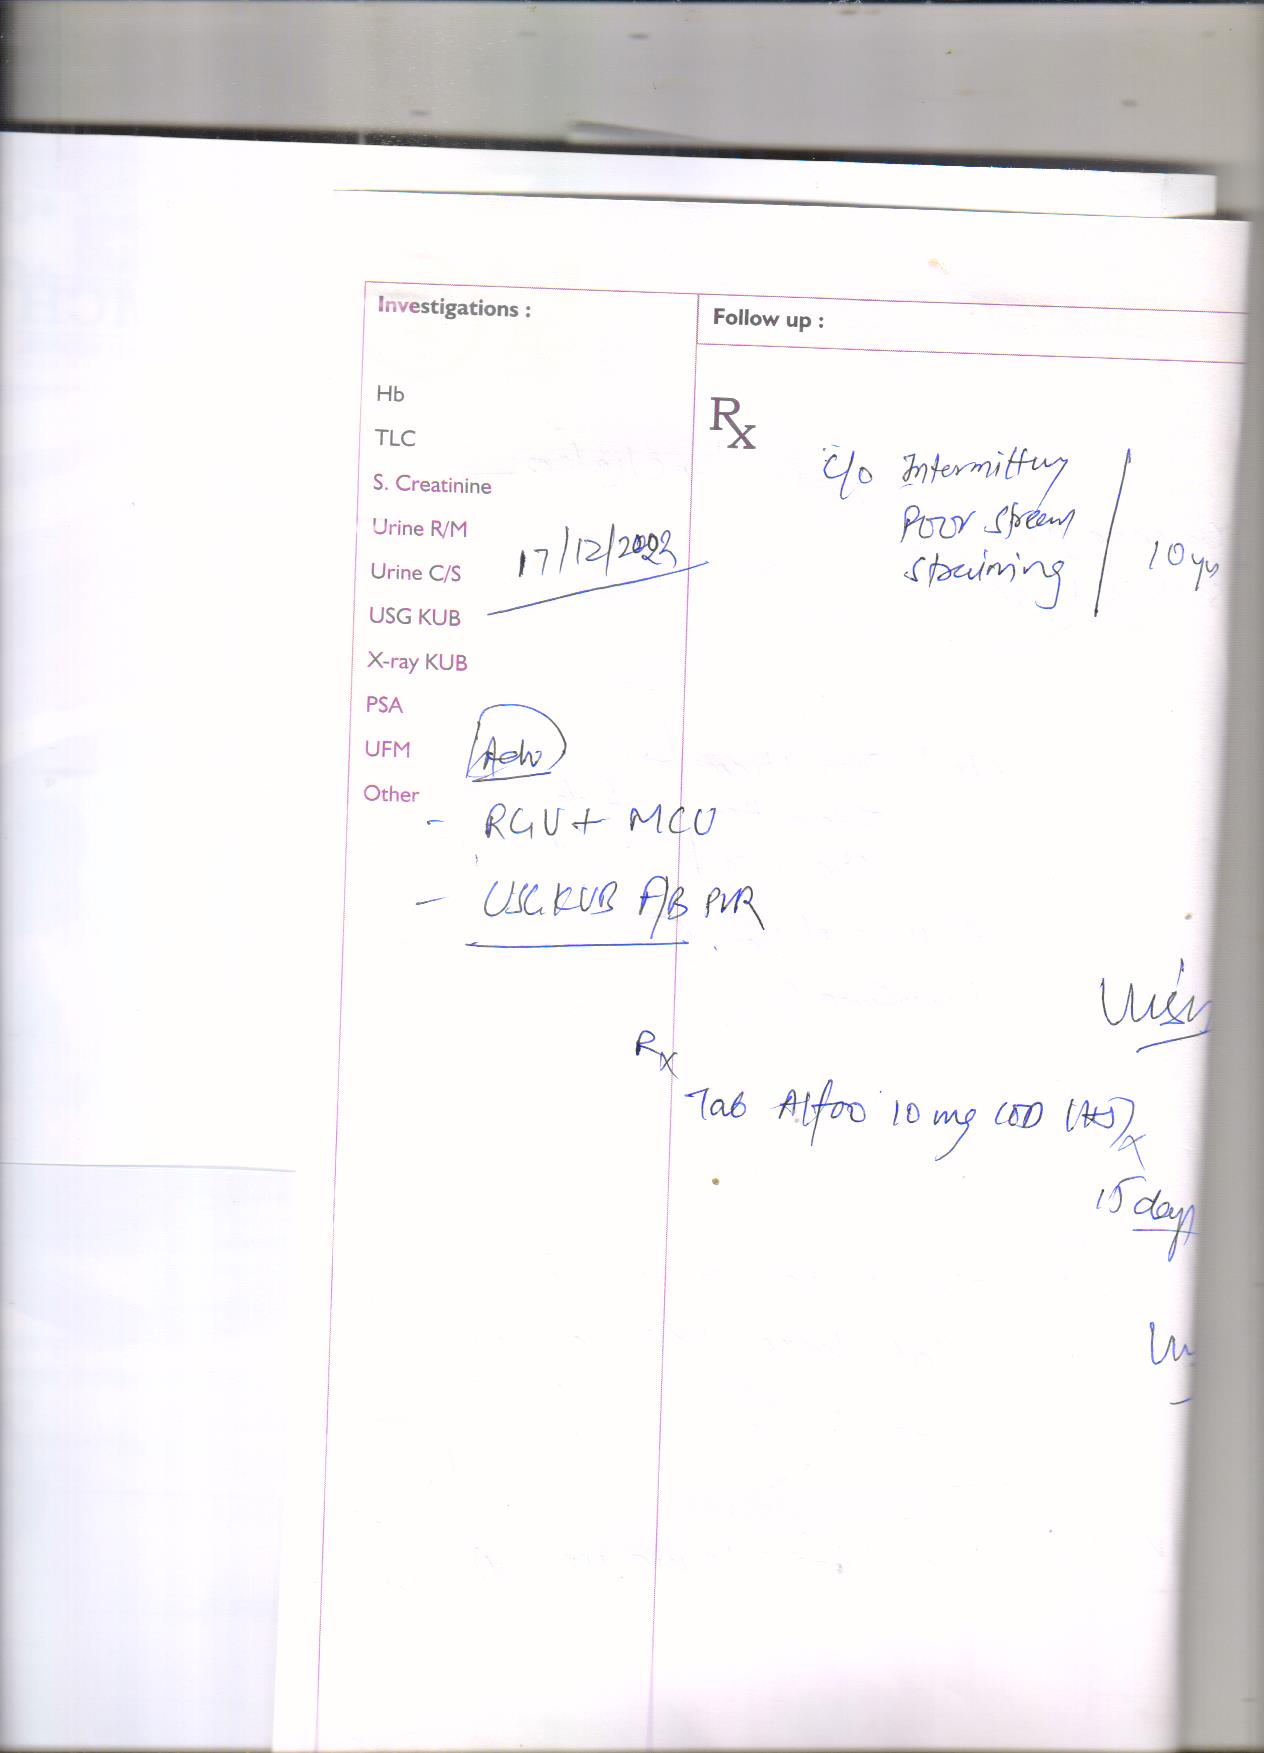 Investigations :
Follow up :
Hb
TLC
S. Creatinine
Urine R/M
Urine C/S
USG KUB
X-ray KUB
PSA
UFM
Other
17/12/2023
Rx
C/o Intermittency
Poor stream
straining
10 yrs
Adv
- RGU + MCU
- USG KUB F/B PVR
Rx
Tab Alfoo 10 mg (OD (HS) x
15 days